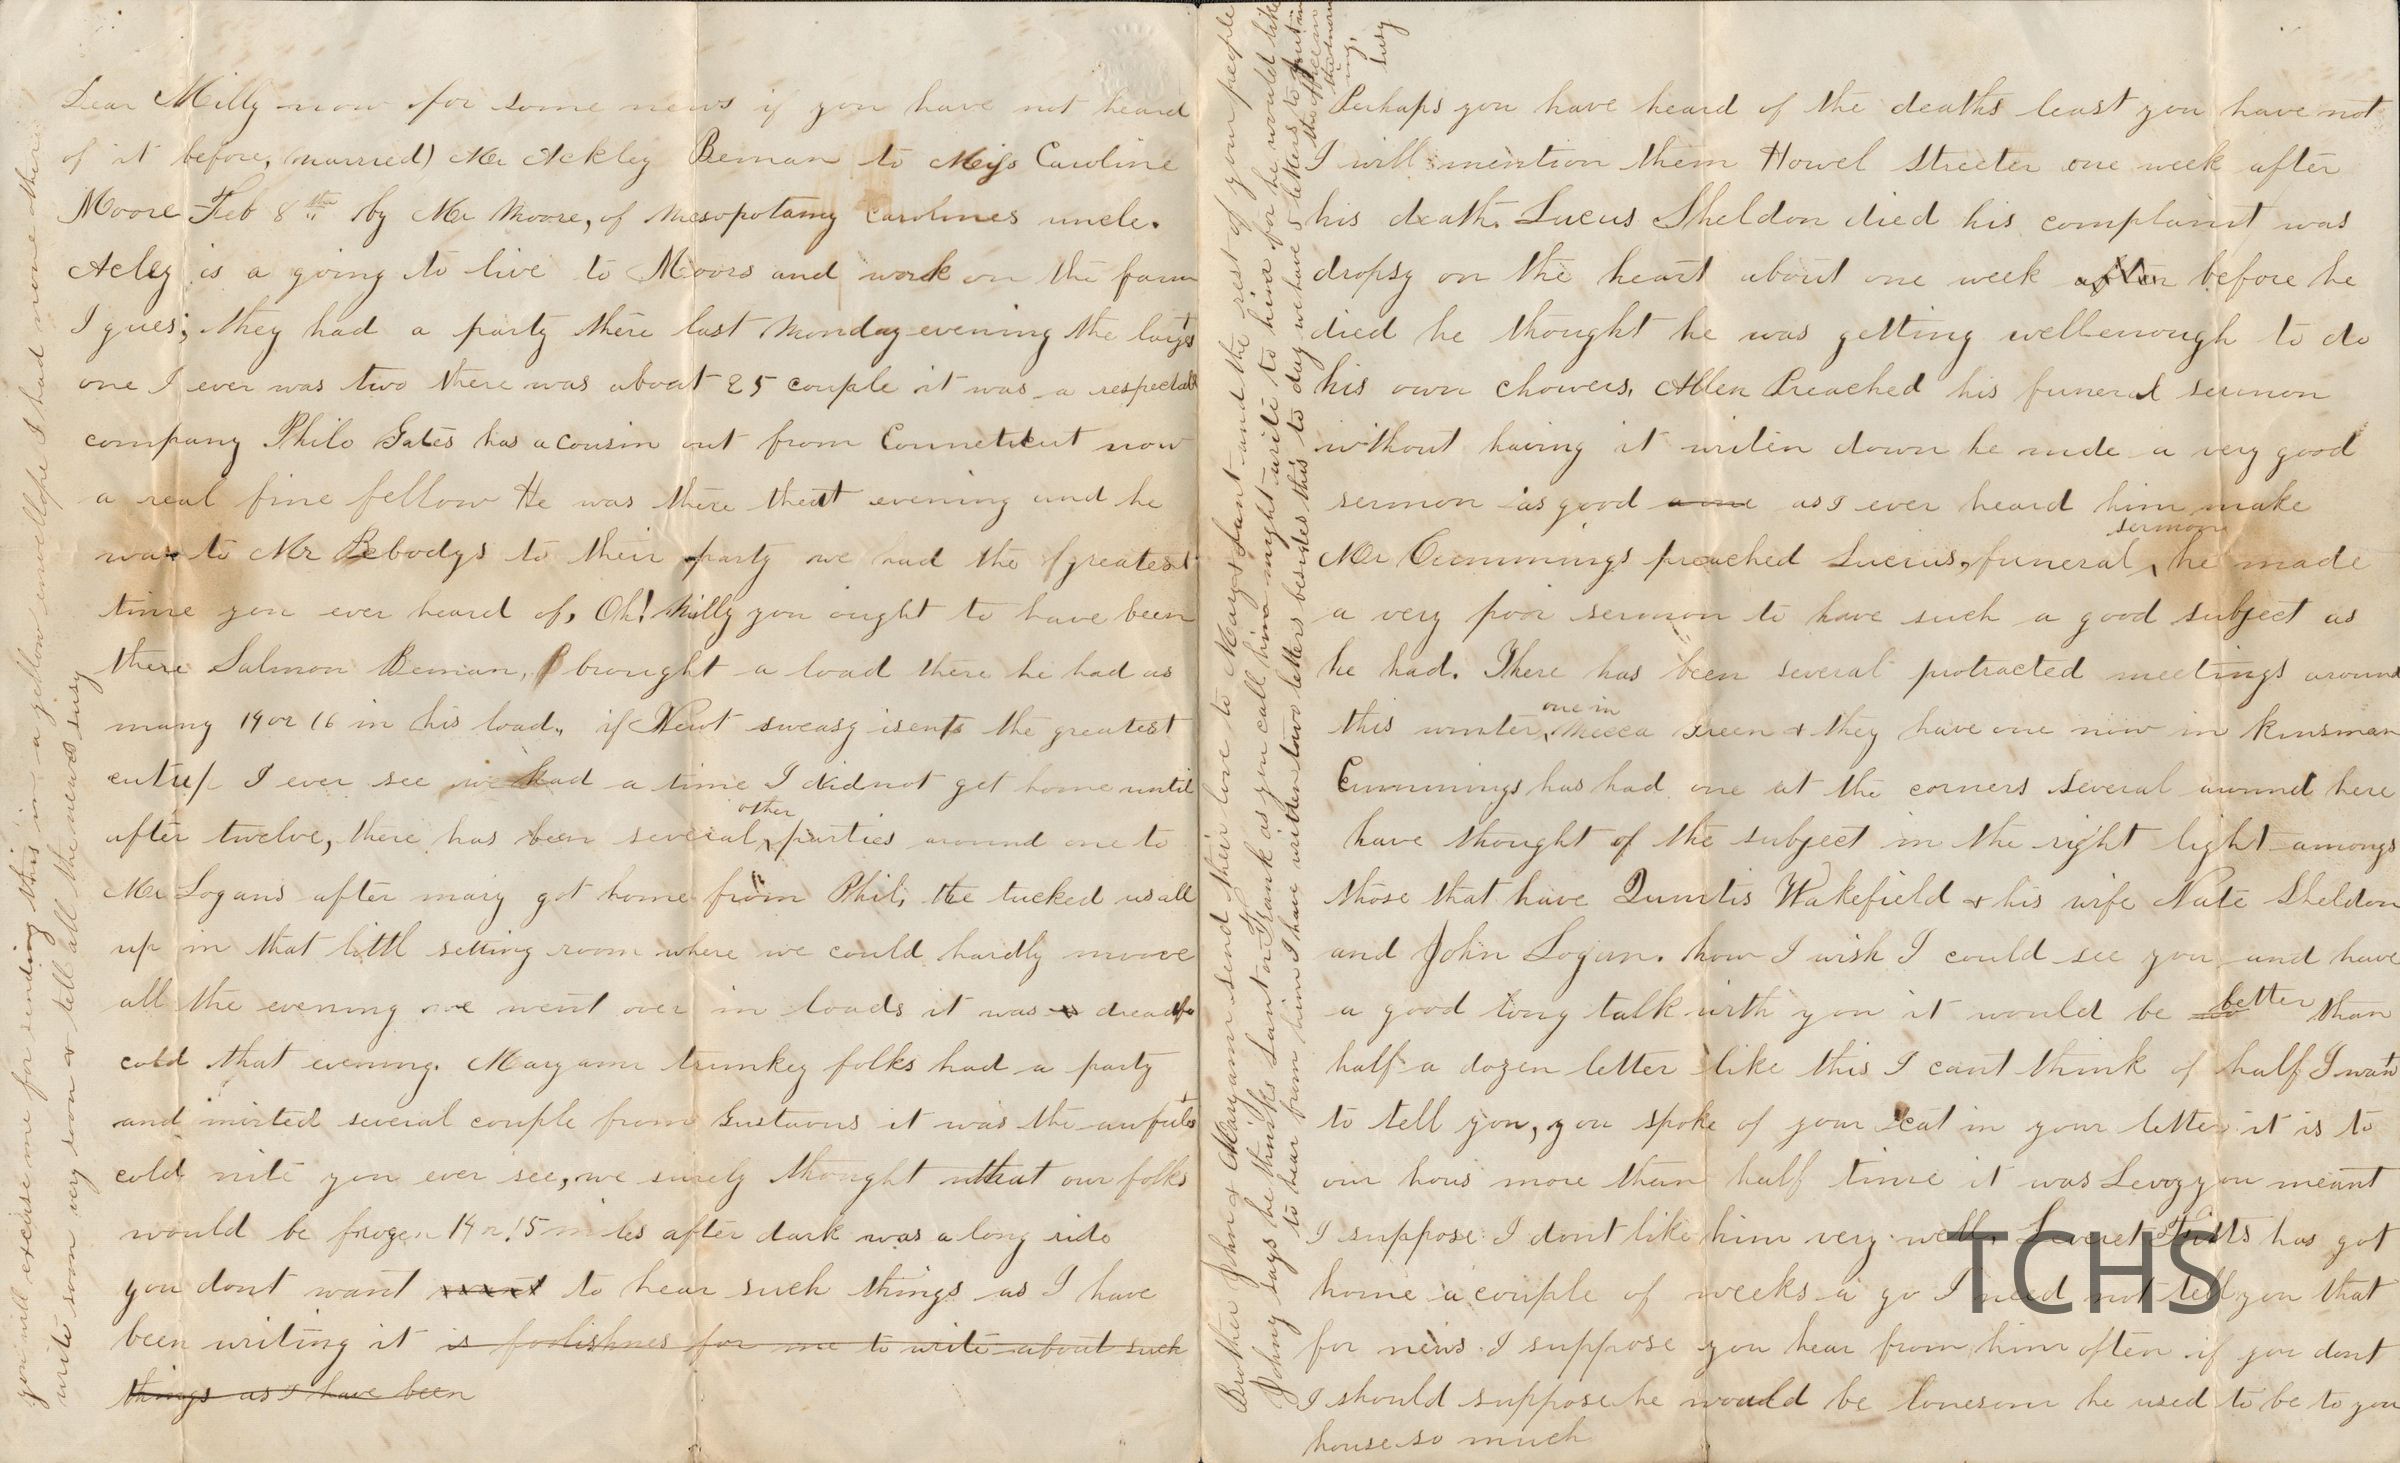 Dear Milly now for some news if you have not heard
of it before, (married) Mr Ackley Beman to Miss Caroline
Moore Feb 8th by Mr Moore, of Mesopotamy Carolines uncle.
Acley is a going to live to Moors and work on the farm
I gues; they had a party there last Monday evening the largst
one I ever was two there was about 25 couple it was a respectabl
company Philo Gates has a cousin out from Conneticut now
a real fine fellow He was there that evening and he
was to Mr Pebodys to their party we had the greatest
time you ever heard of, Oh! Milly you ought to have been
there Salmon Beman, brought a load there he had as
many 14 or 16 in his load, if Newt sweasy isent the greatest
I ever see we had a time I did not get home until
after twelve, there has been several other parties around one to
Mr Logans after mary got home from Phil, the tucked us all
up in that littl setting room where we could hardly moove
all the evening we went over in loads it was dreadfu
cold that evening. Maryann trunkey folks had a party
and invited several couple from Gustavus it was the awfulst
cold nite you ever see, we surely thought that our folks
would be frozen 14 or 15 miles after dark was a long ride
you dont want want to hear such things as I have
been writing it is foolishnes for me to write about such
things as I have been
you will excuse me for sending this in a yellow envellope I had none other
write soon very soon & tell all the news Susy
Perhaps you have heard of the deaths least you have not
I will mention them Howel Streeter one week after
his death. Lucus Sheldon died his complaint was
dropsy on the heart about one week after before he
died he thought he was getting well enough to do
his own chowers, Allen Preached his funeral sermon
without having it writen down he mde a very good
sermon as good a one as I ever heard him make
Mr Cummings preached Lucius, funeral sermon, he made
a very poor sermon to have such a good subject as
he had. There has been several protracted meetings around
this winter, one in Mecca Green & they have one now in Kinsman
Cummings has had one at the corners several around here
have thought of the subject in the right light amongs
those that have Quintis Wakefield & his wife Nate Sheldon
and John Logan. how I wish I could see you and have
a good long talk with you it would be better than
half a dozen letter like this I cant think of half I want
to tell you, you spoke of your cat in your letter it is to
our hous more than half time it was Levozy you meant
I suppose I dont like him very well, Leveret Fitts has got
home a couple of weeks a go I need not tell you that
for news I suppose you hear from him often if you dont
I should suppose he would be lonesom he used to be to you
house so much
Brother John & Maryann send their love to Mary & Aunt and the rest of your people
Johny says he thinks Santa Frank as you call him might write to him for he would like
to hear from him I have written two letters besides this to day we have 5 letters to put in
the office in
the morn
ing,
Susy
TCHS